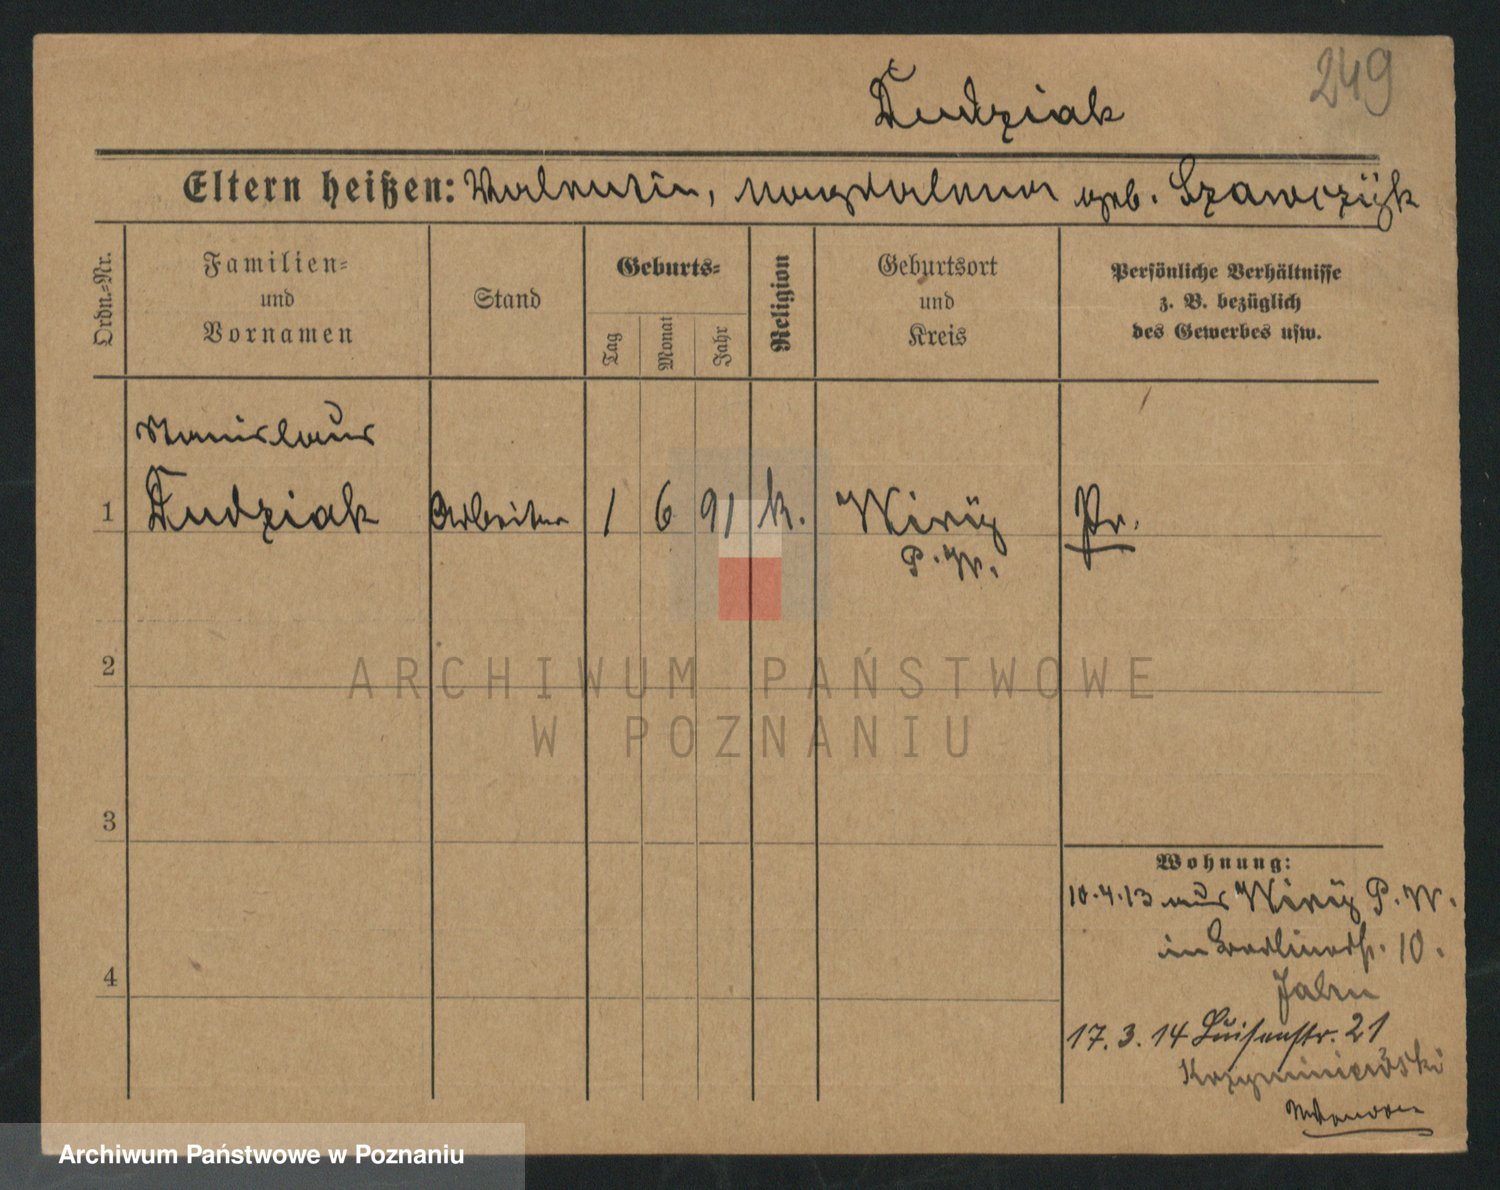 249
Dudziak
Eltern heißen: Valentin, Magdalena geb. Szawczÿk
Ordn.-Nr.
Familien-
und
Vornamen
Stand
Geburts-
Tag
Monat
Jahr
Religion
Geburtsort
und
Kreis
Persönliche Verhältnisse
z. B. bezüglich
des Gewerbes usw.
Stanislaus
1 Dudziak Arbeiter 1 6 91 k. Wirÿ Pr.
P. W.
2
3
4
Wohnung:
10.4.13 aus Wirÿ P. W.
in Berlinerstr. 10.
Jahn
17. 3. 14 Luisenstr. 21
ARCHIWUM PAŃSTWOWE
W POZNANIU
Archiwum Państwowe w Poznaniu